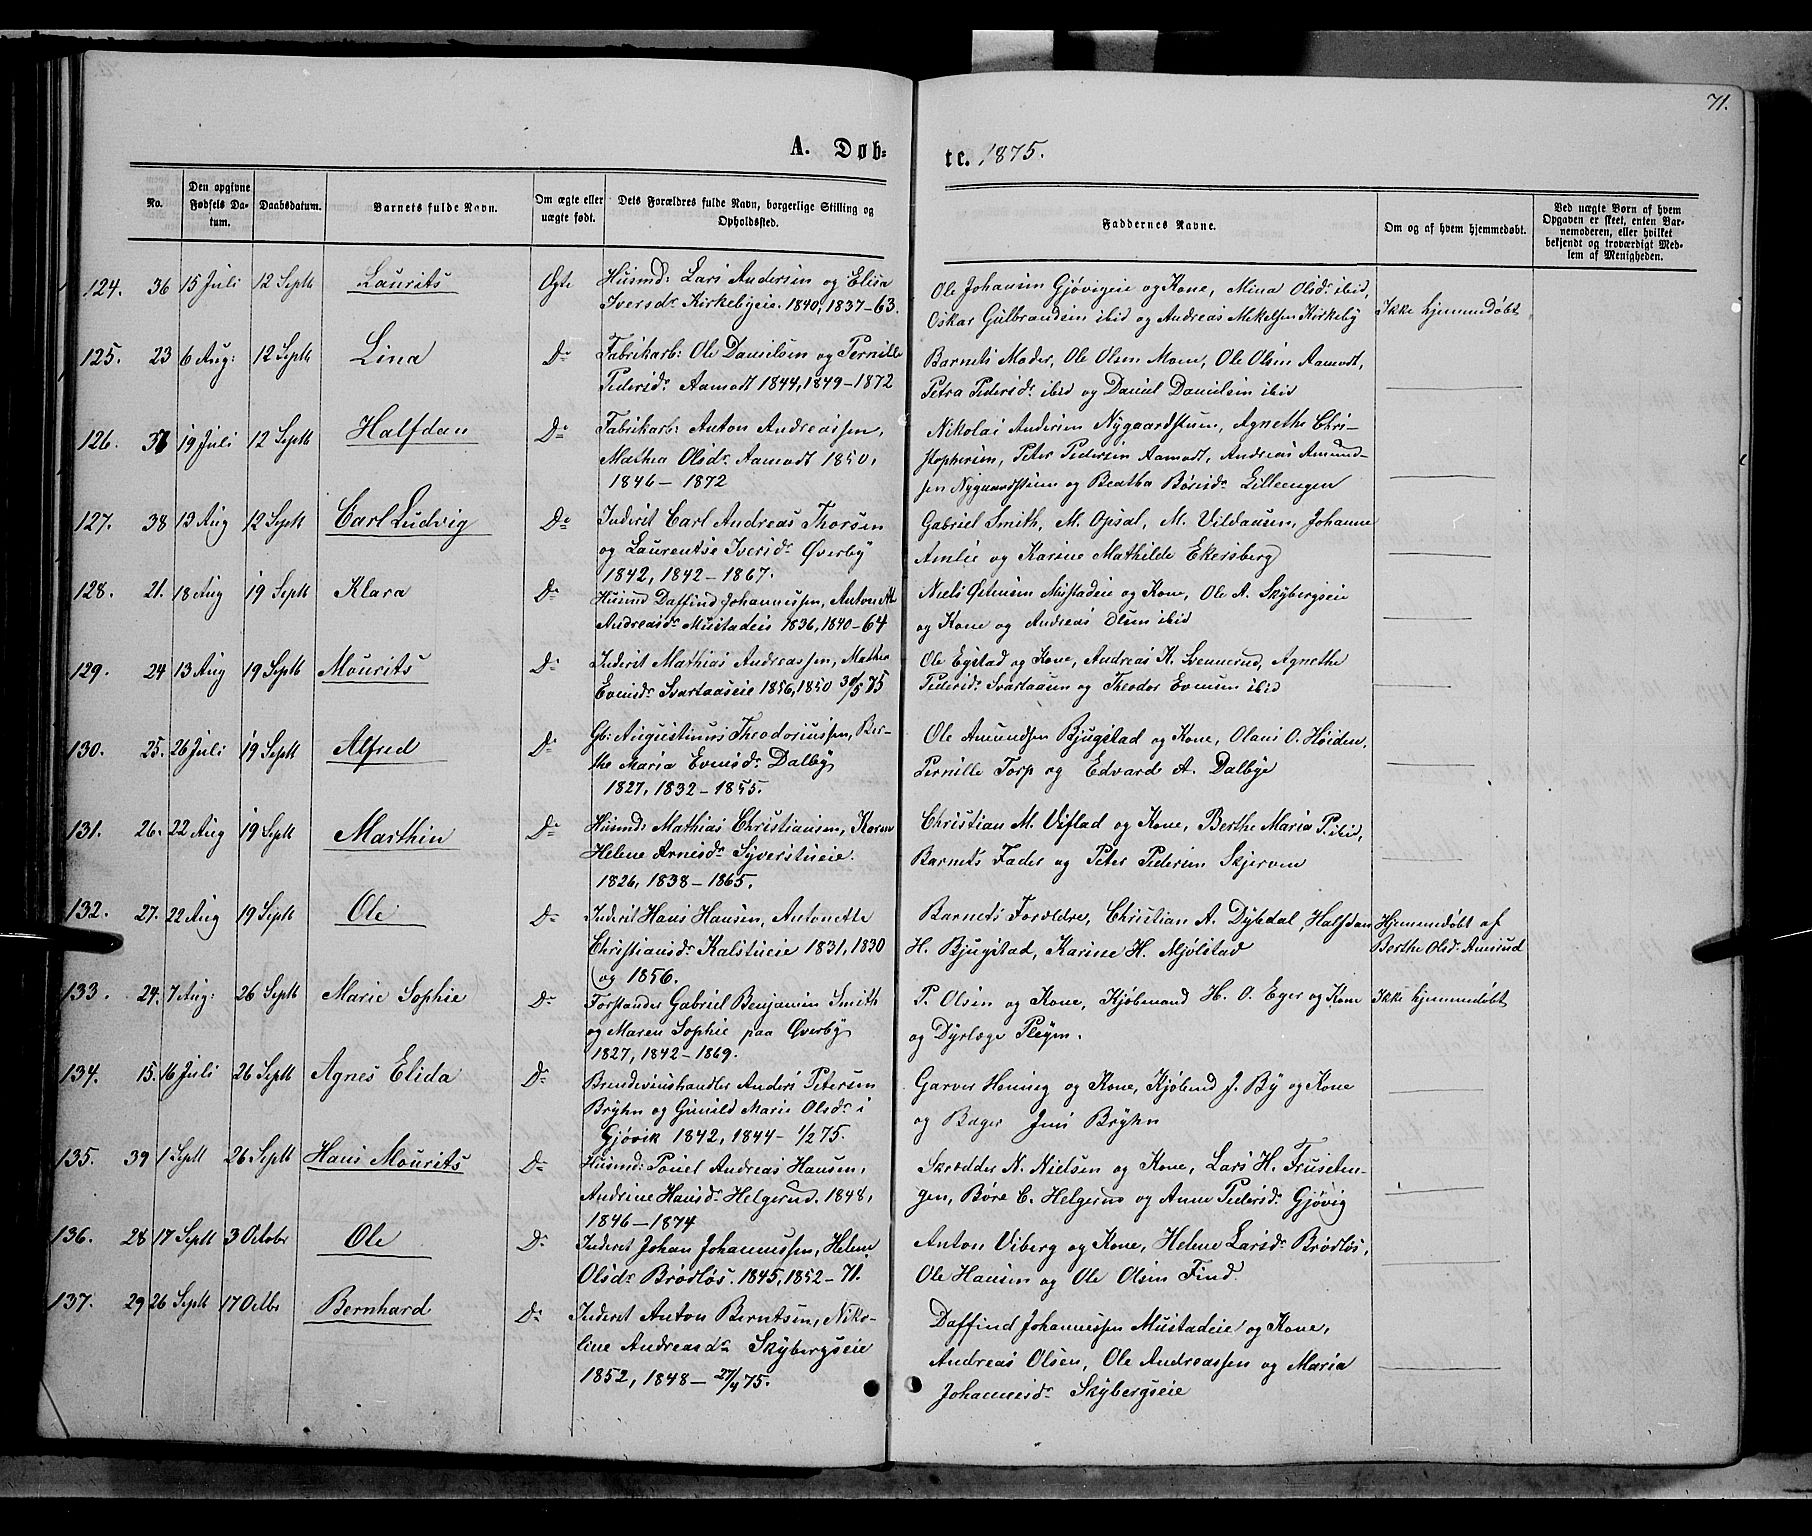 71.
A. Døb- te. 1875.
No.
Den opgivne Fødsels Da- tum.
Daabsdatum.
Barnets fulde Navn.
Om ægte eller uægte født.
Dets Forældres fulde Navn, borgerlige Stilling og Opholdssted.
Faddernes Navne.
Om og af hvem hjemmedøbt.
Ved uægte Børn af hvem Opgaven er skeet, enten Bar- nemoderen, eller hvilket bekjendt og troværdigt Med- lem af Menigheden.
124. 36 15 Juli 12 Septb Laurits Ægte Husmd: Lars Andersen og Elisa Ole Johansen Gjøvigeie og Kone, Mina Olsdr ibid, Ikke hjemmedøbt
Iversdr Kirkebyeie. 1840, 1837-63. Oskar Gulbrandsen ibid og Andreas Mikelsen Kirkeby
125. 23 6 Aug: 12 Septb Lina Do Fabrikarb: Ole Danielsen og Pernille Barnets Moder, Ole Olsen Moen, Ole Olsen Aamodt,
Pedersdr Aamodt 1844, 1849-1872 Petra Pedersdr ibid og Daniel Danielsen ibid
126. 37 19 Juli 12 Septb Halfdan Do Fabrikarb: Anton Andreassen, Nikolai Andersen Nygaardstuen, Agnethe Chri-
Mathea Olsdr Aamodt 1850, stophersen, Peter Pedersen Aamodt, Andreas Amund-
1846-1872 sen Nygaardstuen og Beatha Børesdr Lilleengen
127. 38 13 Aug 12 Septb Carl Ludvig Do Inderst Carl Andreas Thorsen Gabriel Smith, M. Opsal, M. Vildausen, Johanne
og Laurentse Iversdr Øverby Amlie og Karine Mathilde Ekersberg
1842, 1842-1867.
128. 21. 18 Aug 19 Septb Klara Do Husmd Daffind Johannessen, Anton Niels Østensen Mustadeie og Kone, Ole A. Skybergseie
Andreasdr Mustadeie 1836, 1840-64 og Kone og Andreas Olsen ibid
129. 24 13 Aug 19 Septb Mourits Do Inderst Mathias Andreassen, Mathea Ole Egstad og Kone, Andreas K. Svennerud, Agnethe
Evensdr Svartaaseie 1856, 1850 30/5 75 Pedersdr Svartaasen og Theodor Evensen ibid
130. 25. 26 Juli 19 Septb Alfred Do Gb: Augustinus Theodoriussen, Ber- Ole Amundsen Bjugstad og Kone, Olaus O. Høiden,
the Maria Evensdr Dalby Pernille Torp og Edvard A. Dalbye
1827, 1832-1855.
131. 26. 22 Aug 19 Septb Marthin Do Husmd: Mathias Christiansen, Karen Christian M. Viflad og Kone, Berthe Maria P. ibid,
Helene Arnesdr Syverstueie. Barnets Fader og Peter Pedersen Skjerven
1826, 1838-1865.
132. 27. 22 Aug 19 Septb Ole Do Inderst Hans Hansen, Antonette Barnets Forældre, Christian A. Dybdal, Halfdan Hjemmedøbt af
Christiansdr Kalstueie 1831, 1830 H. Bjugstad, Karine H. Mjølstad Berthe Olsdr Amrud
og 1856.
133. 24. 7 Aug: 26 Septb Marie Sophie Do Forstander Gabriel Benjamin Smith P. Olsen og Kone, Kjøbmand H. O. Eger og Kone Ikke hjemmedøbt
og Maren Sophie paa Øverby og Dyrlæge Pleym.
1827, 1842-1869.
134. 15. 16 Juli 26 Septb Agnes Elida Do Brændevinshandler Anders Petersen Garver Honing og Kone, Kjøbmd J. By og Kone
Bryhn og Gunild Marie Olsdr i og Bager Jens Bryhn
Gjøvik 1842, 1844- 1/2 75.
135. 39 1 Septb 26 Septb Hans Mourits Do Husmd: Povel Andreas Hansen, Skrædder N. Nielsen og Kone, Lars H. Fruseten-
Andrine Hansdr Helgerud. 1848, gen, Børe C. Helgerud og Anne Pedersdr Gjøvig
1846-1874
136. 28 17 Septb 3 Octobr Ole Do Inderst Johan Johannessen, Helene Anton Viberg og Kone, Helene Larsdr Brødløs,
Olsdr Brødløs. 1845, 1852-71. Ole Hansen og Ole Olsen Find.
137. 29 26 Septb 17 Octbr Bernhard Do Inderst Anton Berntsen, Niko- Daffind Johannessen Mustadeie og Kone,
line Andreasdr Skybergseie Andreas Olsen, Ole Andreassen og Maria
1852, 1848- 27/4 75. Johannesdr Skybergseie